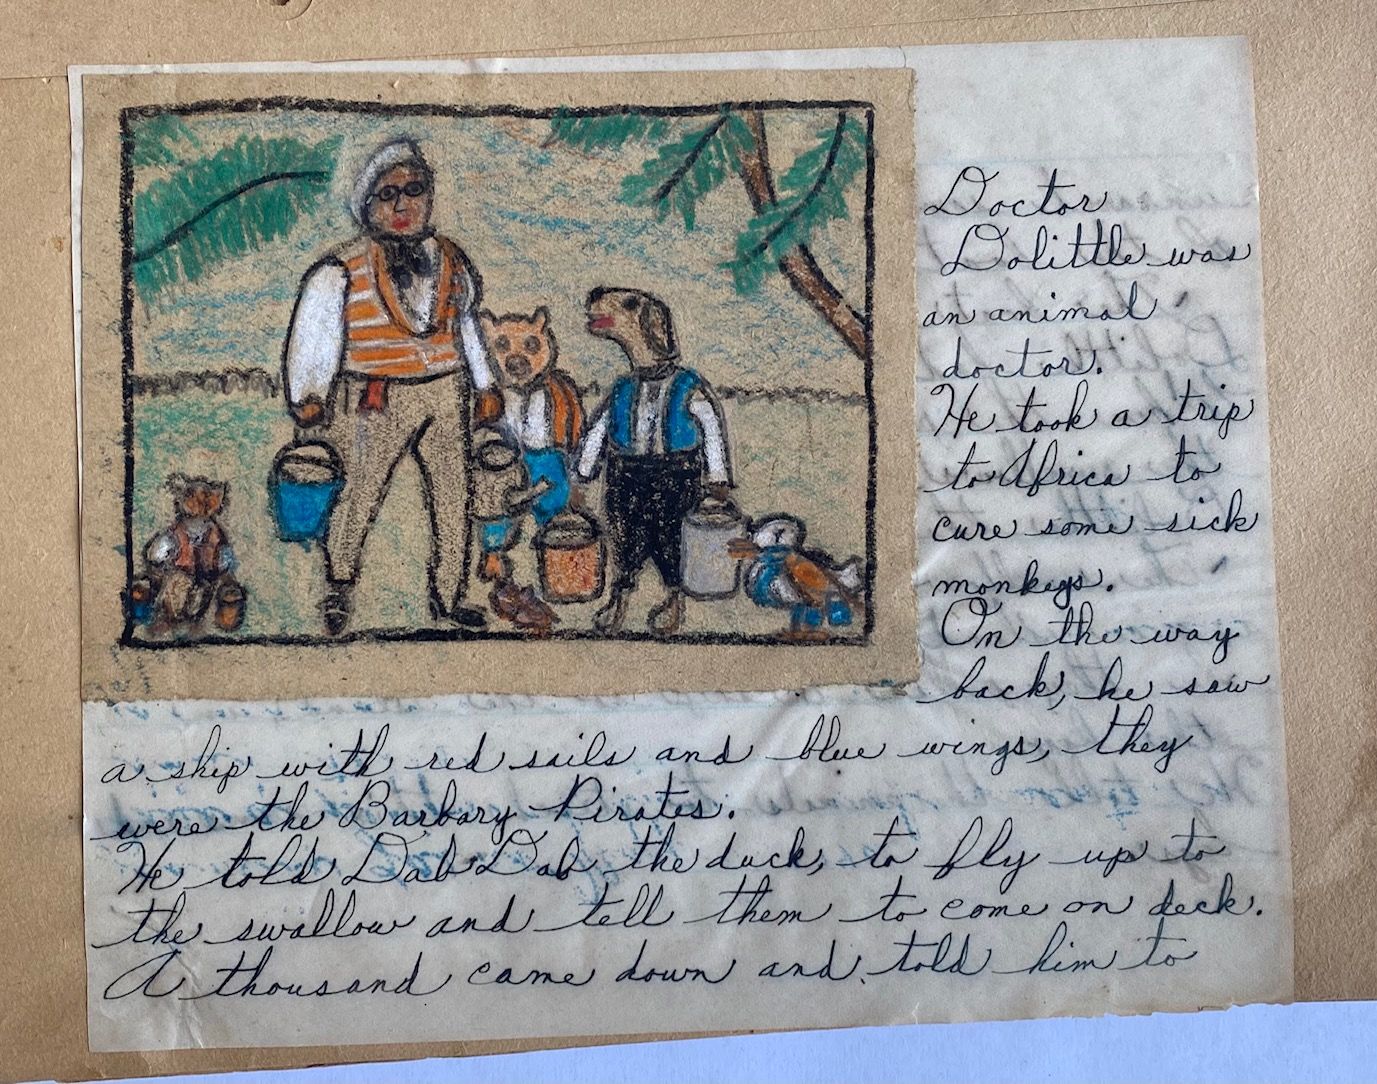 Doctor
Dolittle was
an animal
doctor.
He took a trip
to Africa to
cure some sick
monkeys.
On the way
back, he saw
a ship with red sails and blue wings, they
were the Barbary Pirates.
He told Dab Dab the duck, to fly up to
the swallow and tell them to come on deck.
A thousand came down and told him to